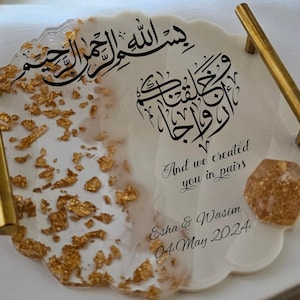 بسم الله الرحمن الرحيم
وخلقناكم
أزواجا
And we created
you in pairs
Esha & Wasim
04 May 2024